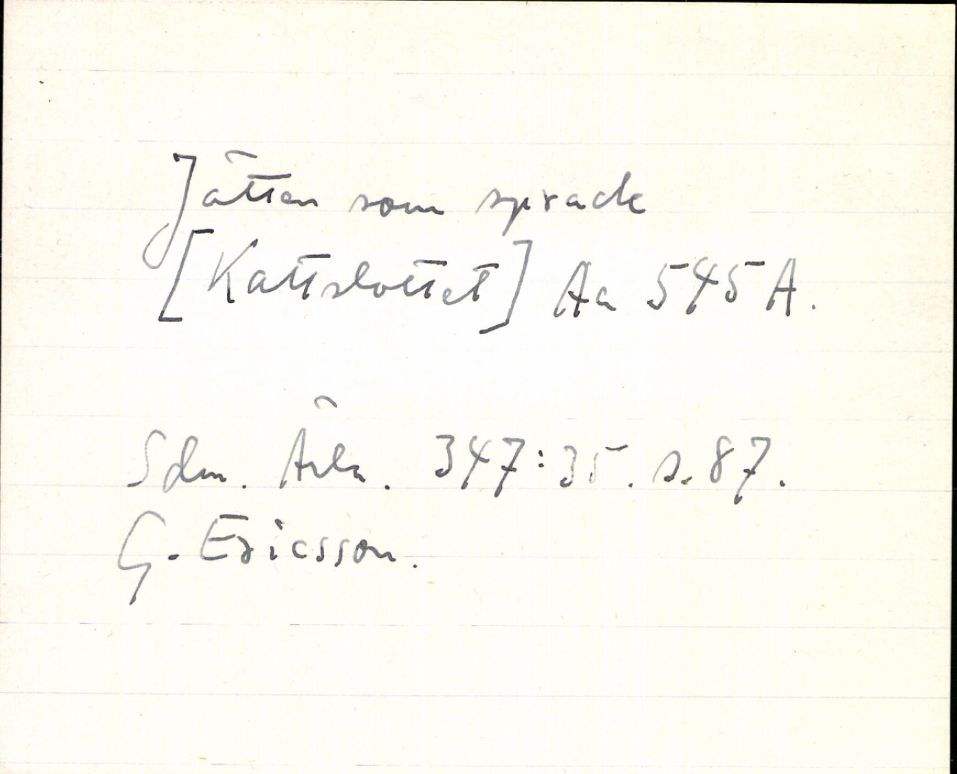 Jätten som sprack
[Kattslottet] Aa 545 A.
Sdm. Ärla. 347:35. s. 87.
G. Ericsson.